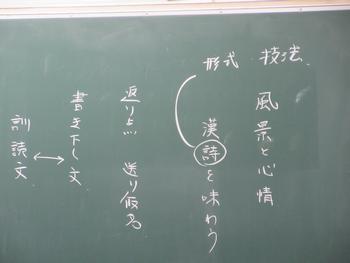 風景と心情
漢詩を味わう
形式・技法
返り点 送り仮名
書き下し文
訓読文